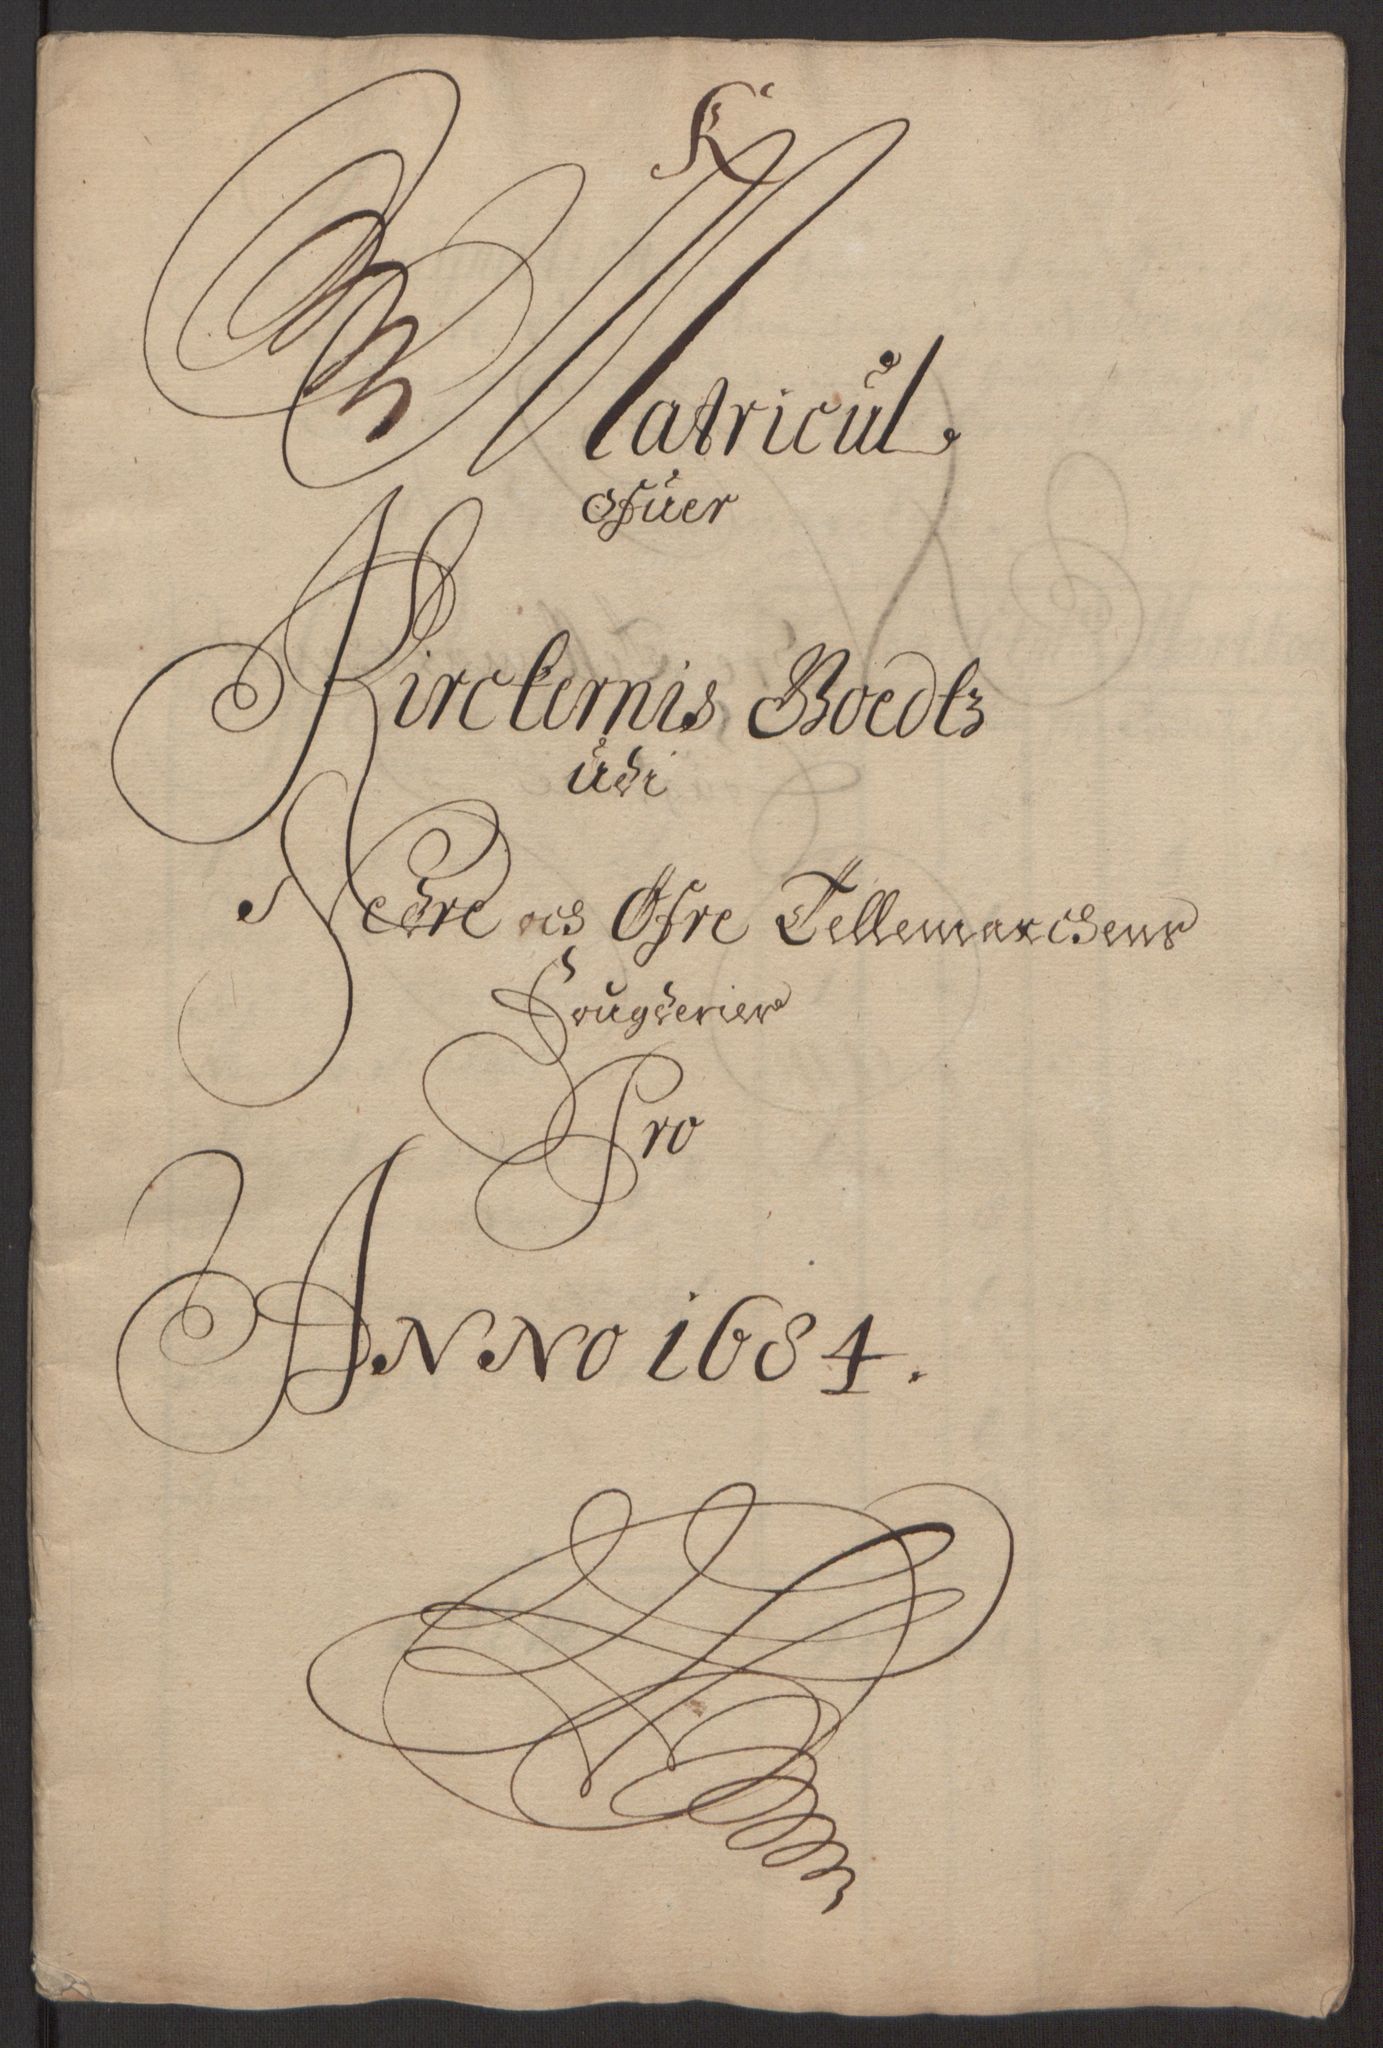 K
Matricul
Ofuer
Kirckernis Boedtz
udi
Nedre och Ofre Tellemarchens
Fougderier
Pro
ANNO 1684.